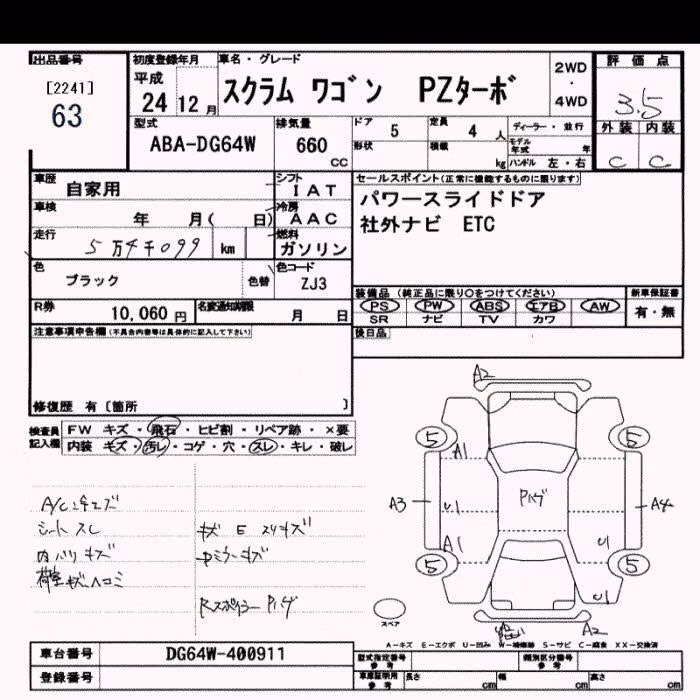 出品番号
[2241]
63
初度登録年月
平成
24 12 月
車名・グレード
スクラム ワゴン PZターボ
2WD
・
4WD
評価点
3.5
外装 内装
C C
型式
ABA-DG64W
排気量
660
CC
ドア 5
形状
定員 4 人
積載 kg
ディーラー・並行
モデル年式 年
ハンドル 左・右
車歴 自家用
シフト IAT
車検 年 月( 日)
冷房 AAC
走行 5万4千099 km
燃料 ガソリン
色 ブラック 色替
色コード ZJ3
R券 10,060 円
名変通知期限 月 日
セールスポイント(正常に機能するものに限ります)
パワースライドドア
社外ナビ ETC
装備品(純正品に限り○をつけてください)
PS PW ABS エアB AW
SR ナビ TV カワ
新車保証書
有・無
後日品
注意事項申告欄(不具合内容等は具体的に記入して下さい)
修復歴 有〔箇所 〕
検査員記入欄
FW キズ・飛石・ヒビ割・リペア跡・×要
内装 キズ・汚レ・コゲ・穴・スレ・キレ・破レ
シートスレ
内バリキズ
荷室キズヘコミ
キズ E スリキズ
Rスポイラー Pハゲ
A2
5 5
A1
A3 U1 Pハゲ A4
A1 U1
5 5
U1
A2
スペア
A－キズ E－エクボ U－凹み W－補修跡 S－サビ C－腐食 XX－交換済
車台番号 DG64W-400911
登録番号
型式指定番号 参考
類別区分番号 参考
車庫証明用 参考
長さ cm
幅 cm
高さ cm